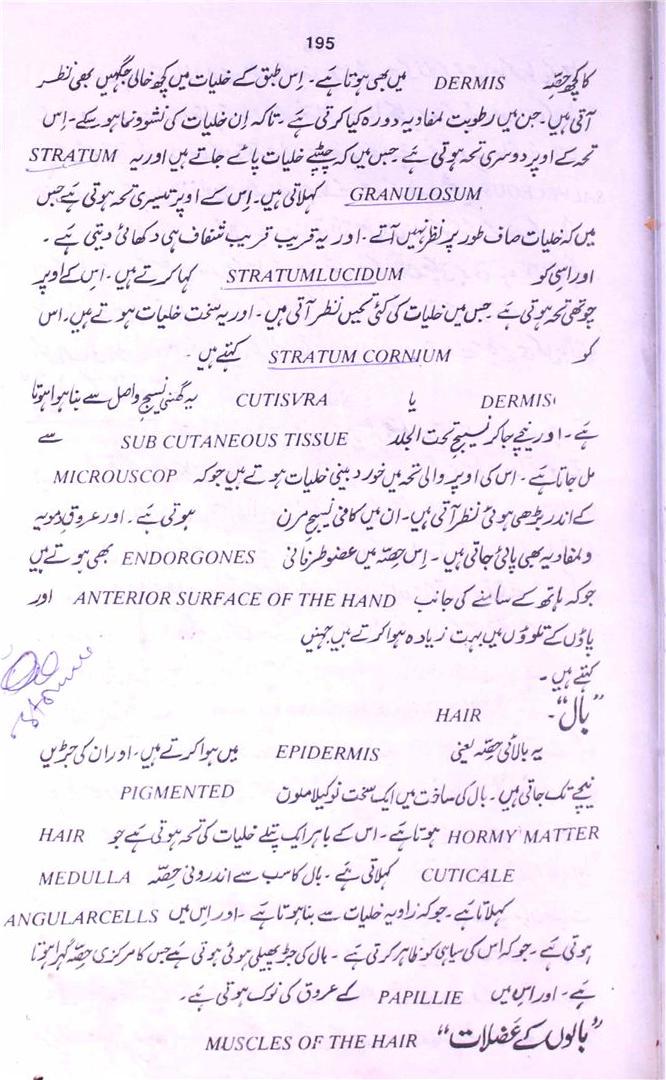 195
کا کچھ حِصّہ DERMIS میں بھی ہوتا ہے۔ اِس طبق کے خلیات میں کچھ خالی جگہیں بھی نظر
آتی ہیں۔ جن میں رطوبت لمفاویہ دورہ کیا کرتی ہے۔ تاکہ اِن خلیات کی نشوونما ہو سکے۔ اِس
تحہ کے اوپر دوسری تحہ ہوتی ہے۔ جس میں کہ چپٹے خلیات پائے جاتے ہیں اور یہ STRATUM
GRANULOSUM کہلاتی ہیں۔ اِس کے اوپر تیسری تحہ ہوتی ہے جس
میں کہ خلیات صاف طور پر نظر نہیں آتے۔ اور یہ قریب قریب شفاف ہی دکھائی دیتی ہے۔
اور اسی کو STRATUMLUCIDUM کہا کرتے ہیں۔ اس کے اوپر
چوتھی تحہ ہوتی ہے۔ جس میں خلیات کی کئی تحیں نظر آتی ہیں۔ اور یہ سخت خلیات ہوتے ہیں۔ اس
کو STRATUM CORNIUM کہتے ہیں۔
DERMIS یا CUTISVRA یہ گھنی نسیج واصل سے بنا ہوا ہوتا
ہے۔ اور نیچے جا کر نسیج تحت الجلد SUB CUTANEOUS TISSUE سے
مل جاتا ہے۔ اس کی اوپر والی تحہ میں خوردبینی خلیات ہوتے ہیں جو کہ MICROUSCOP
کے اندر بڑھی ہوئی نظر آتی ہیں۔ ان میں کافی نسیج مرن ہوتی ہے۔ اور عروقِ دمویہ
و لمفاویہ بھی پائی جاتی ہیں۔ اِس حِصّہ میں عضو طرفانی ENDORGONES بھی ہوتے ہیں
جو کہ ہاتھ کے سامنے کی جانب ANTERIOR SURFACE OF THE HAND اور
پاؤں کے تلوؤں میں بہت زیادہ ہوا کرتے ہیں جنہیں
کہتے ہیں۔
”بال“۔ HAIR
یہ بالائی حِصّہ یعنی EPIDERMIS میں ہوا کرتے ہیں۔ اور ان کی جڑیں
نیچے تک جاتی ہیں۔ بال کی ساخت میں ایک سخت نوکیلا ملون PIGMENTED
HORMY MATTER ہوتا ہے۔ اس کے باہر ایک پتلے خلیات کی تحہ ہوتی ہے جو HAIR
CUTICALE کہلاتی ہے۔ بال کا سب سے اندرونی حِصّہ MEDULLA
کہلاتا ہے۔ جو کہ زاویہ خلیات سے بنا ہوتا ہے۔ اور اِس میں ANGULARCELLS
ہوتی ہے۔ جو کہ اس کی سیاہی کو ظاہر کرتی ہے۔ بال کی جڑ پھیلی ہوئی ہوتی ہے جس کا مرکزی حِصّہ گہرا ہوتا
ہے۔ اور اس میں PAPILLIE کے عروق کی نوک ہوتی ہے۔
”بالوں کے عَضلات“ MUSCLES OF THE HAIR